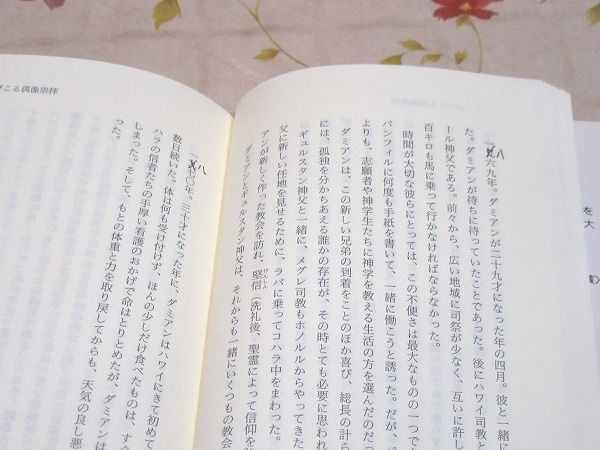 一八六九年。ダミアンが二十九才になった年の四月。彼と一緒に
た。ダミアンが待ちに待っていたことであった。後にハワイ司教と
ール神父である。前々から、広い地域に司祭が少なく、互いに許し
百キロも馬に乗って行かなければならなかった。
時間が大切な彼らにとっては、この不便さは最大なものの一つで
パンフィルに何度も手紙を書いて、一緒に働こうと誘った。だが、
よりも、志願者や神学生たちに神学を教える生活の方を選んだのだっ
ダミアンは、この新しい兄弟の到着をことのほか喜び、総長の計ら
には、孤独を分かちあえる誰かの存在が、その時とても必要に思われ
ギュルスタン神父と一緒に、メグレ司教もホノルルからやってきた
父に新しい任地を見せるために、ラバに乗ってコハラ中をまわった。
アンが新しく作った教会を訪れ、堅信（洗礼後、聖霊によって信仰を強
けんしん
ダミアンとギュルスタン神父は、それからも一緒にいくつもの教会
こる偶像崇拝
一八七〇年。三十才になった年に、ダミアンはハワイにきて初めて
数日続いた。体は何も受け付けず、ほんの少しだけ食べたものは、すぐ
ハラの信者たちの手厚い看護のおかげで命はとりとめたが、ダミアン
しまった。そして、もとの体重と力を取り戻してからも、天気の良し悪
った。
を大